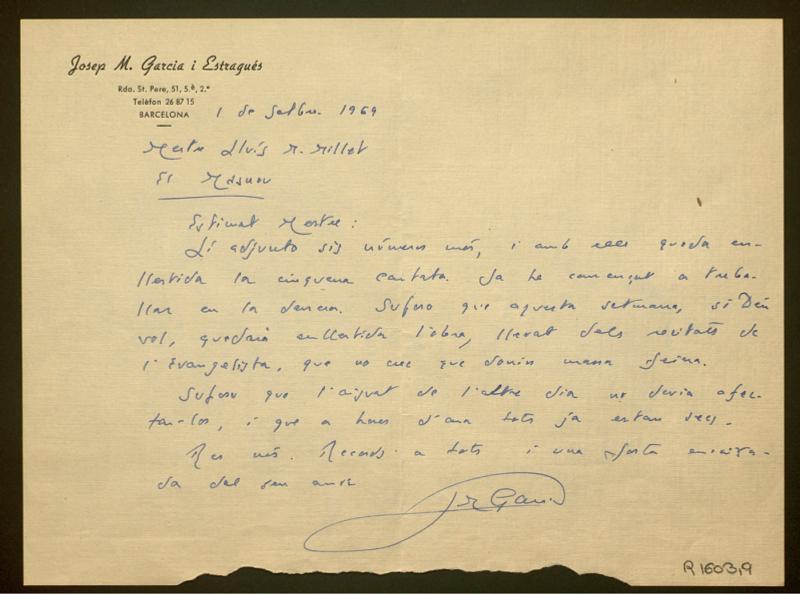 Josep M. Garcia i Estragués
Rda. St. Pere, 51, 5.è, 2.ª
Telèfon 26 87 15
BARCELONA
1 de Setbre. 1969
Mestre Lluís M. Millet
El Masnou
Estimat Mestre:
Li adjunto sis números més, i amb ells queda en-
llestida la cinquena cantata. Ja he començat a treba-
llar en la darrera. Suposo que aquesta setmana, si Déu
vol, quedarà enllestida l'obra, llevat dels recitats de
l'Evangelista, que no crec que donin massa feina.
Suposo que l'aiguat de l'altre dia no devia afec-
tar-los, i que a hores d'ara tots ja estan secs.
Res més. Records a tots i una forta encaixa-
da del seu amic
J M Garcia
R 1603,9